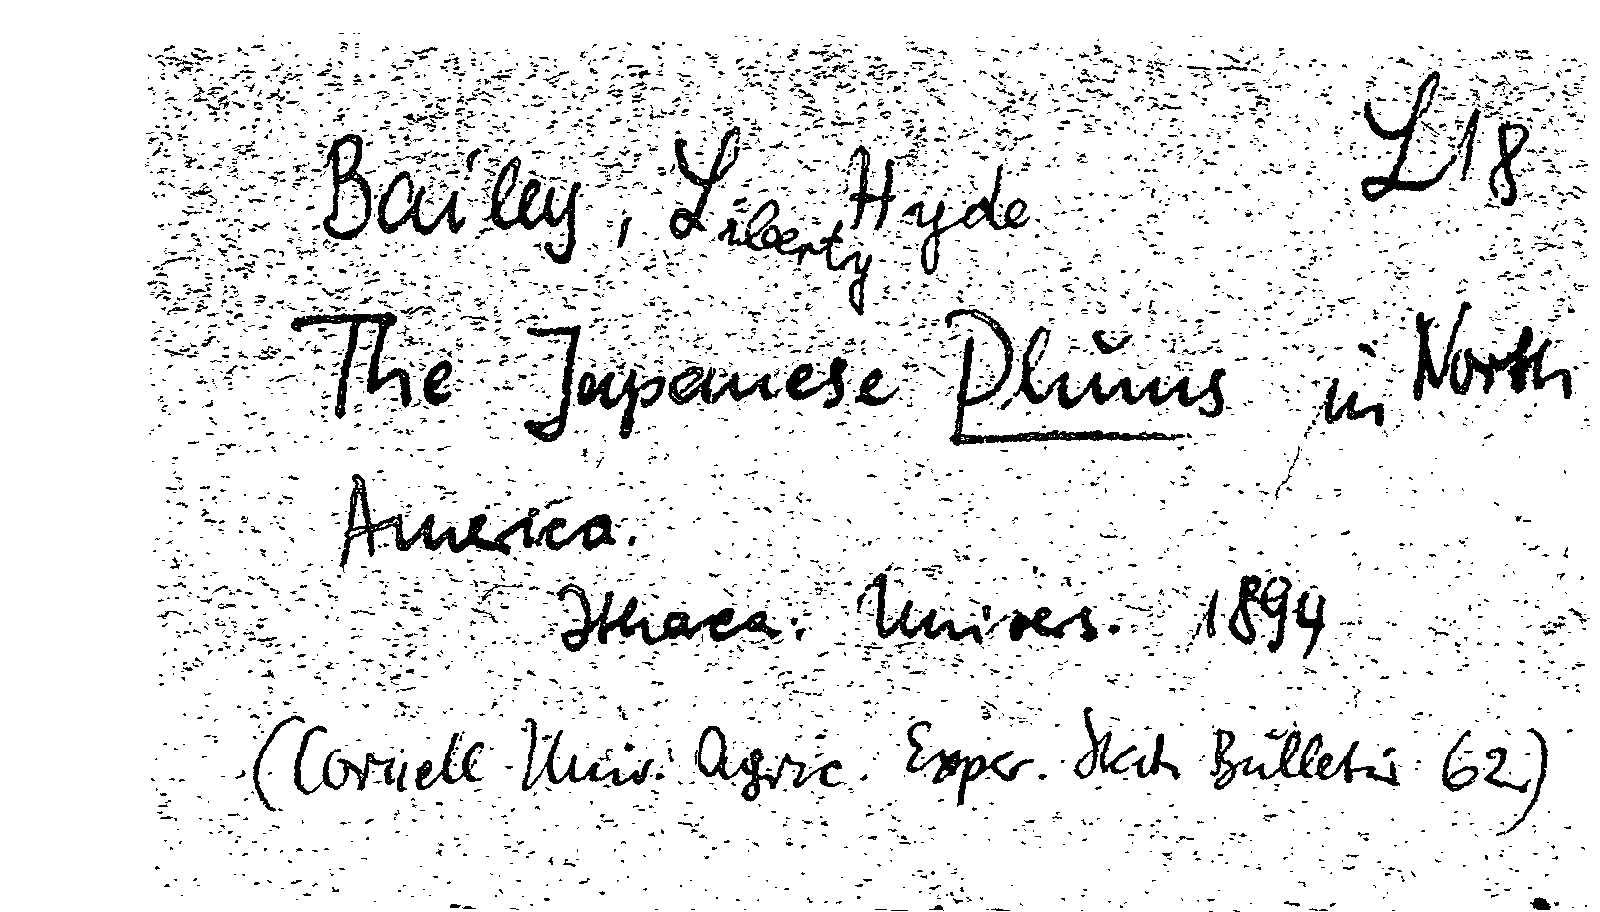 L18
Bailey, Liberty Hyde
The Japanese Plums in North
America.
Ithaca: Univers. 1894
(Cornell Univ. Agric. Exper. Stat. Bulletin 62)